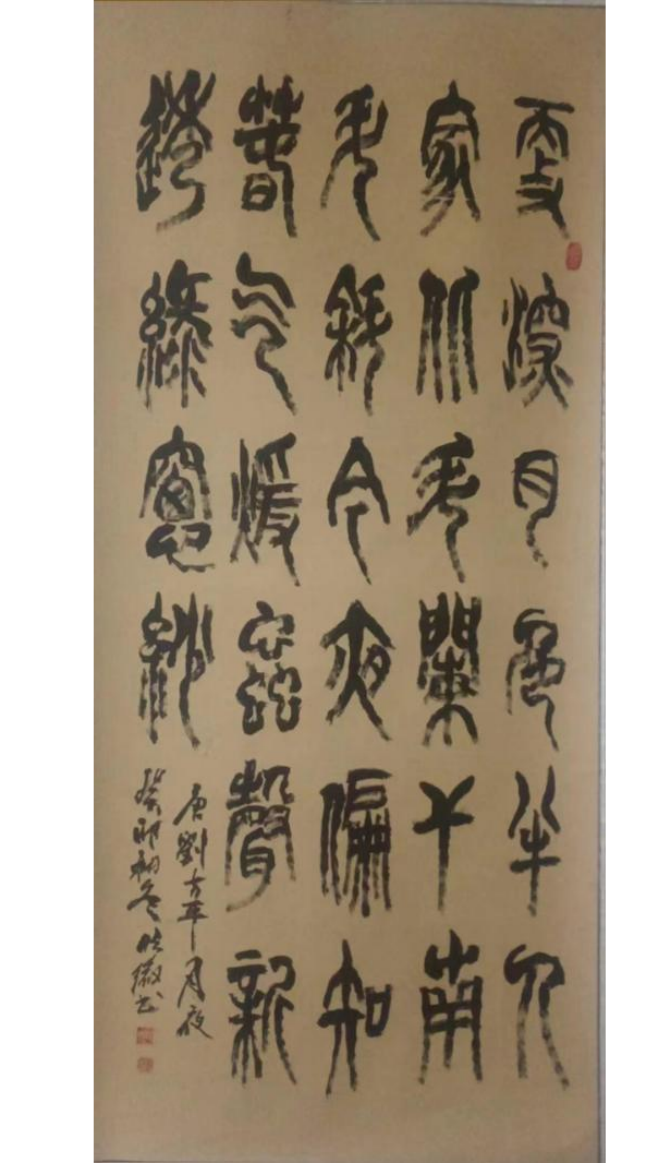 更深月色半人
家北斗闌干南
斗斜今夜偏知
春气暖蟲聲新
透綠窻紗
唐劉方平月夜
癸卯初冬书